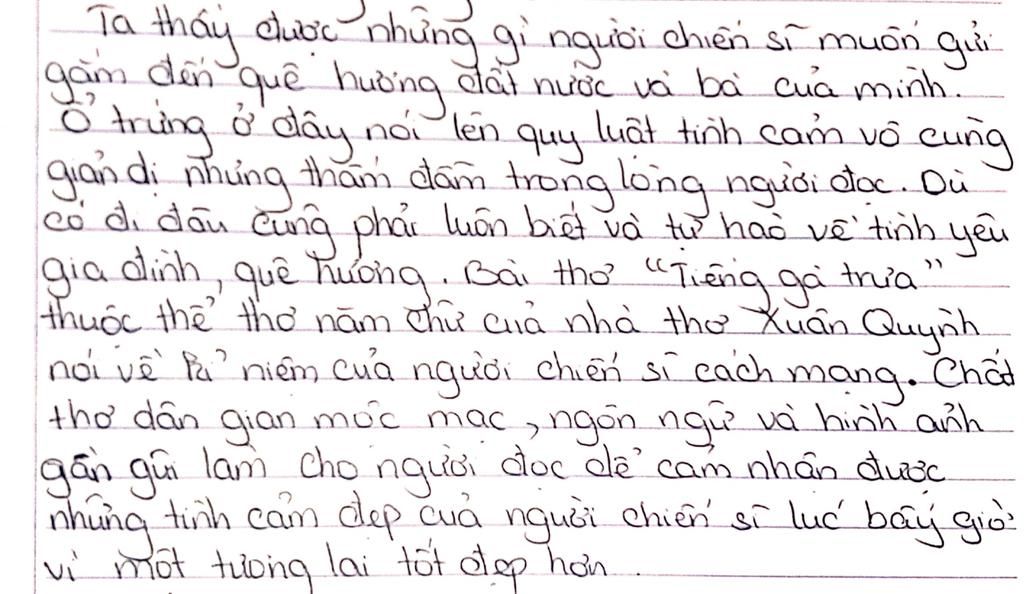 Ta thấy được những gì người chiến sĩ muốn gửi
gắm đến quê hương đất nước và bà của mình.
Ổ trứng ở đây nói lên quy luật tình cảm vô cùng
giản dị nhưng thấm đẫm trong lòng người đọc. Dù
có đi đâu cũng phải luôn biết và tự hào về tình yêu
gia đình, quê hương. Bài thơ “Tiếng gà trưa”
thuộc thể thơ năm chữ của nhà thơ Xuân Quỳnh
nói về kỉ niệm của người chiến sĩ cách mạng. Chất
thơ dân gian mộc mạc, ngôn ngữ và hình ảnh
gần gũi làm cho người đọc dể cảm nhận được
những tình cảm đẹp của người chiến sĩ lúc bấy giờ
vì một tương lai tốt đẹp hơn.